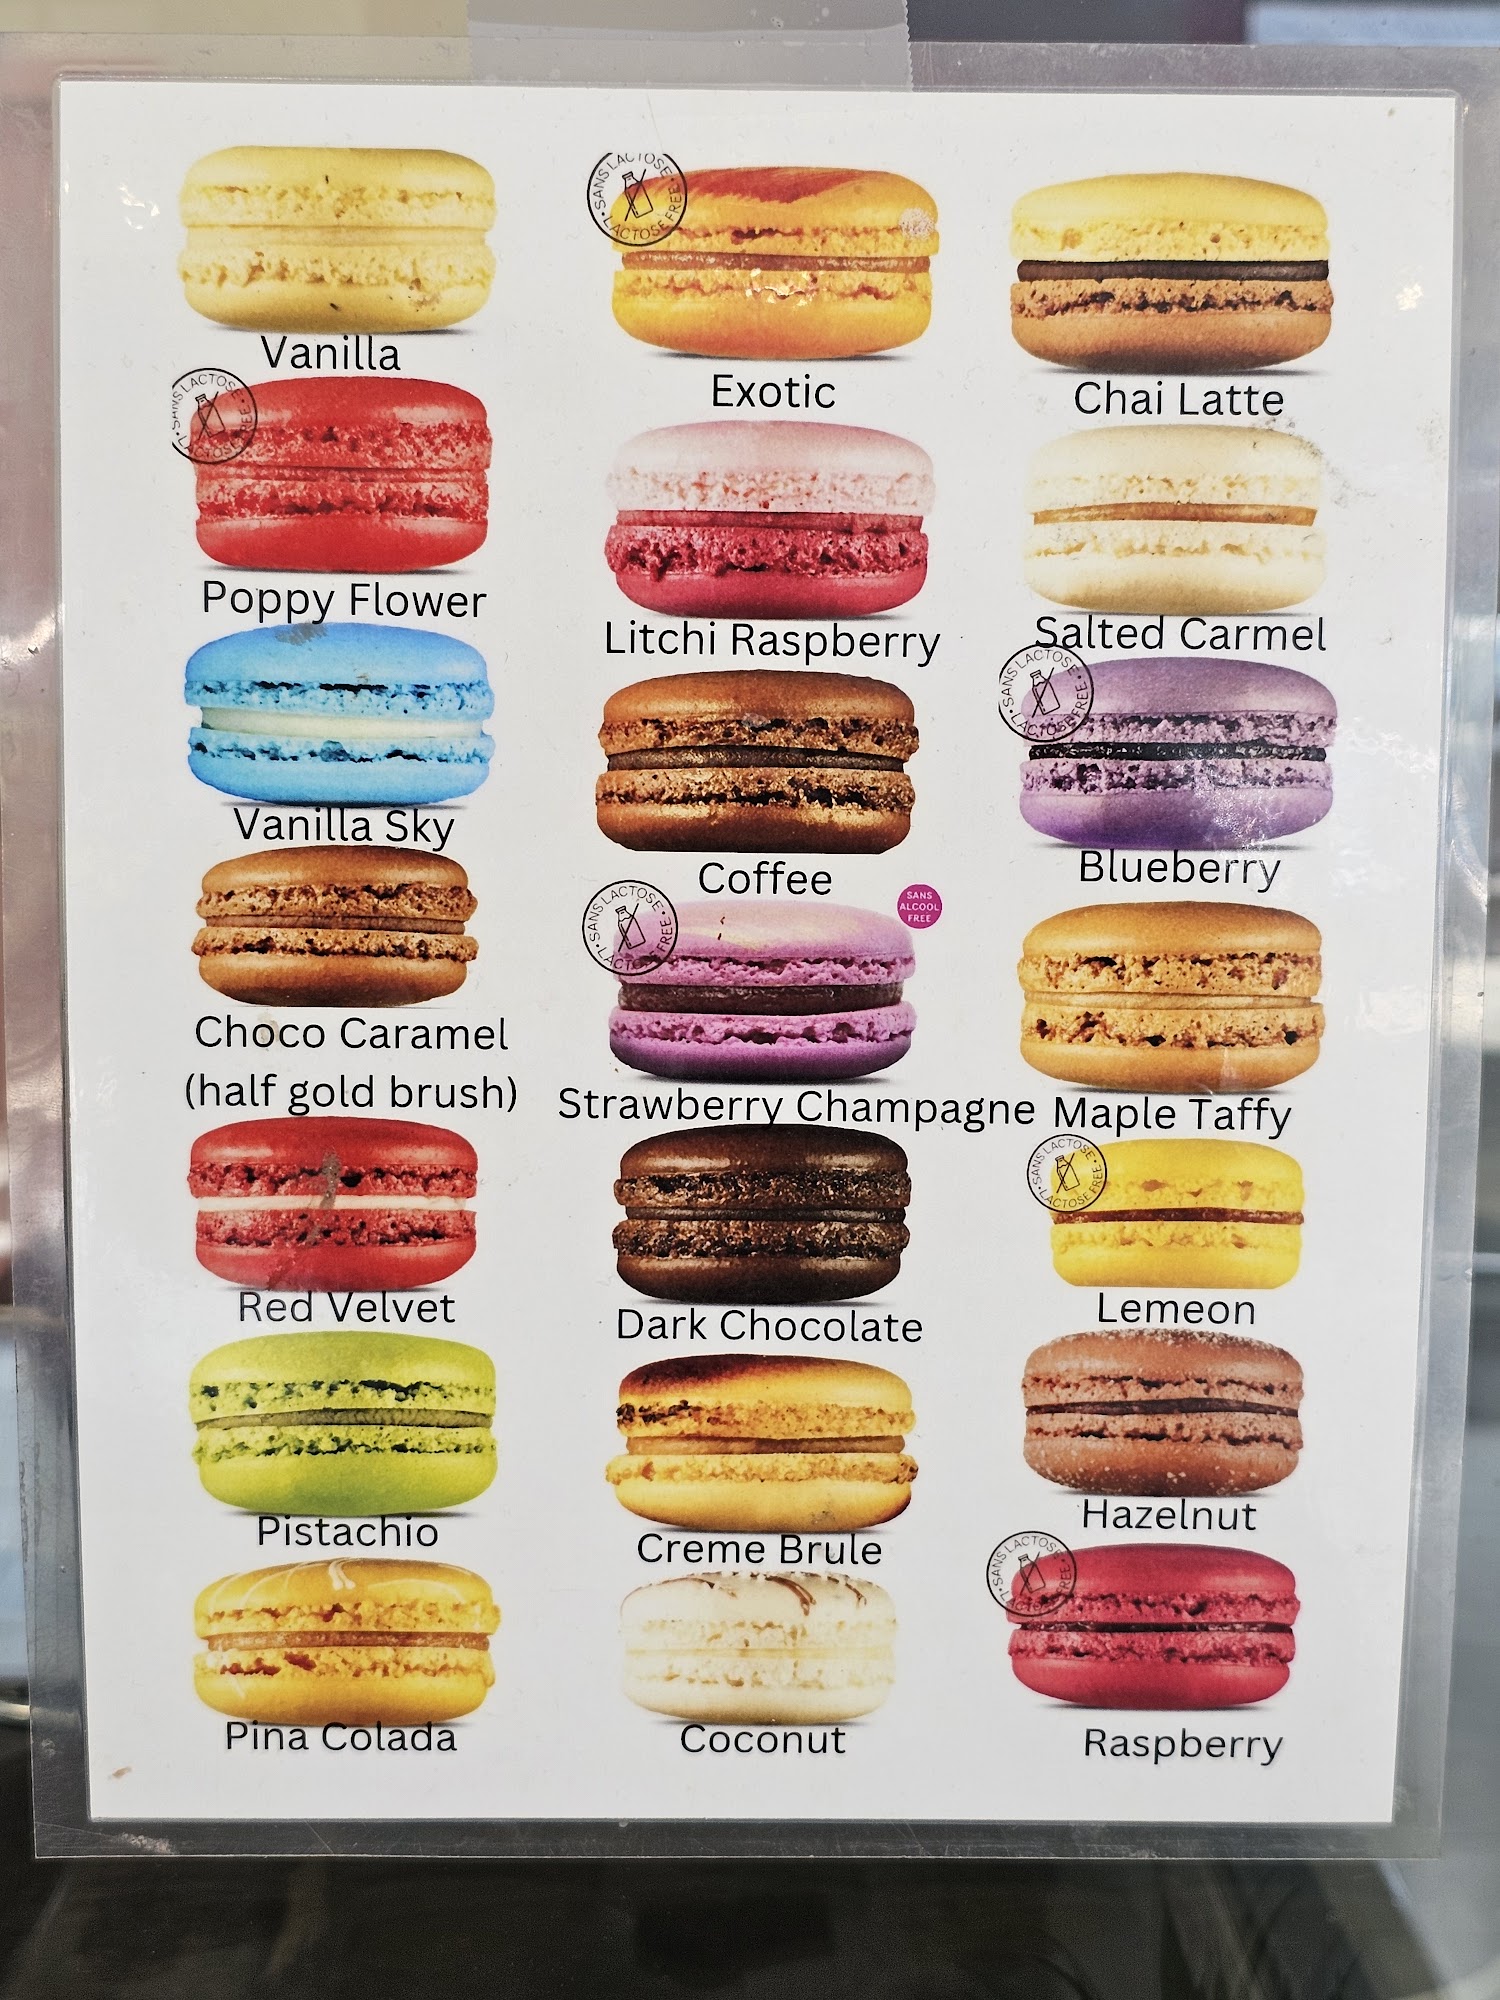 SANS LACTOSE • LACTOSE FREE •
Vanilla
Exotic
Chai Latte
SANS LACTOSE • LACTOSE FREE •
Poppy Flower
Litchi Raspberry
Salted Carmel
SANS LACTOSE • LACTOSE FREE •
Vanilla Sky
Coffee
Blueberry
SANS LACTOSE • LACTOSE FREE •
SANS
ALCOOL
FREE
Choco Caramel
(half gold brush)
Strawberry Champagne
Maple Taffy
SANS LACTOSE • LACTOSE FREE •
Red Velvet
Dark Chocolate
Lemeon
Pistachio
Creme Brule
Hazelnut
SANS LACTOSE • LACTOSE FREE •
Pina Colada
Coconut
Raspberry